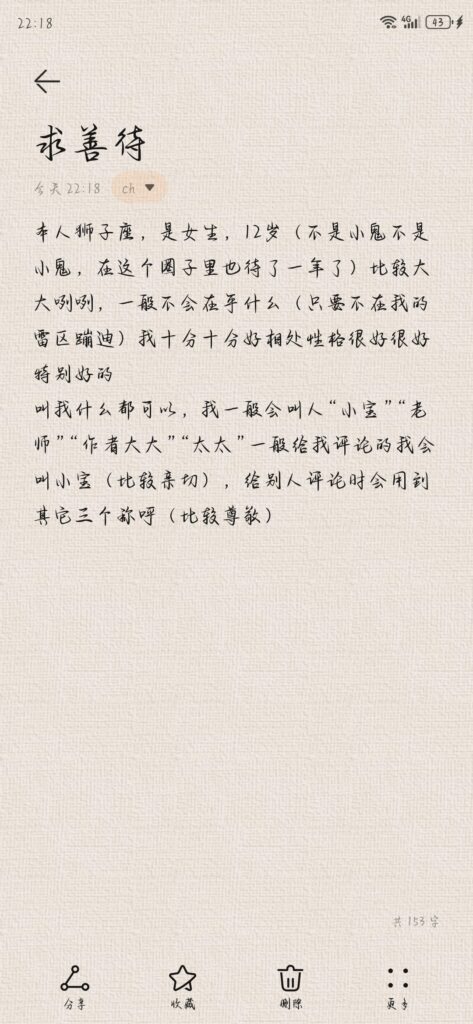 22:18
4G
43
求善待
今天 22:18 ch
本人狮子座，是女生，12岁（不是小鬼不是
小鬼，在这个圈子里也待了一年了）比较大
大咧咧，一般不会在乎什么（只要不在我的
雷区蹦迪）我十分十分好相处性格很好很好
特别好的
叫我什么都可以，我一般会叫人“小宝”“老
师”“作者大大”“太太”一般给我评论的我会
叫小宝（比较亲切），给别人评论时会用到
其它三个称呼（比较尊敬）
共 153 字
分享 收藏 删除 更多